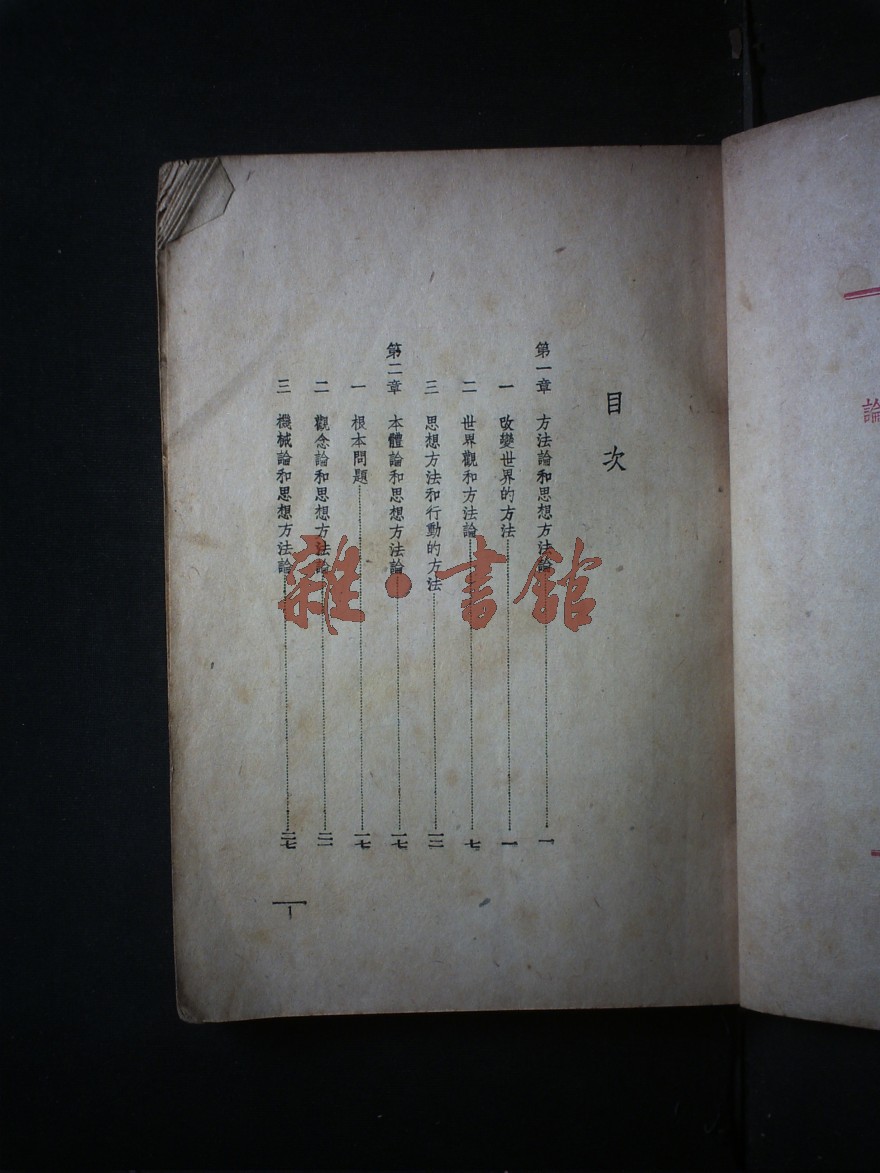 論
目次
第一章 方法論和思想方法論 一
一 改變世界的方法 一
二 世界觀和方法論 七
三 思想方法和行動的方法 一二
第二章 本體論和思想方法論 一七
一 根本問題 一七
二 觀念論和思想方法論 二一
三 機械論和思想方法論 二七
1
雜·書館